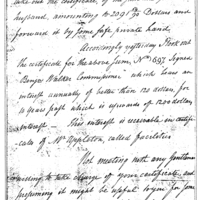 take out the certificate, of the
husband, amounting to 209 90 Dollars and
forward it by some safe private hand,
Accordingly yesterday I took out
the certificate for the above sum, No 1697 Signed
Walter Commissioner which leaves an
interest annually of better than 120 dollars, for
10 years past which is upwards of 1200 dollars
interest. This interest is receivable on certifi-
cate of Mr Appleton, called facilities
Not meeting with any gentleman
willing to take charge of your certificate, and
presuming it might be useful to you for some